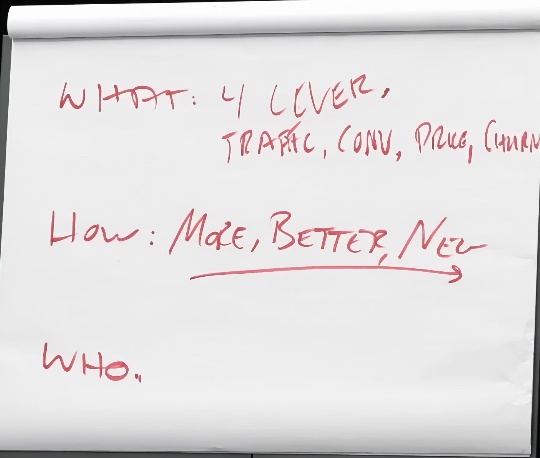 WHAT: 4 LEVER,
TRAFFIC, CONV, PRICE, CHURN
HOW: MORE, BETTER, NEW
WHO..